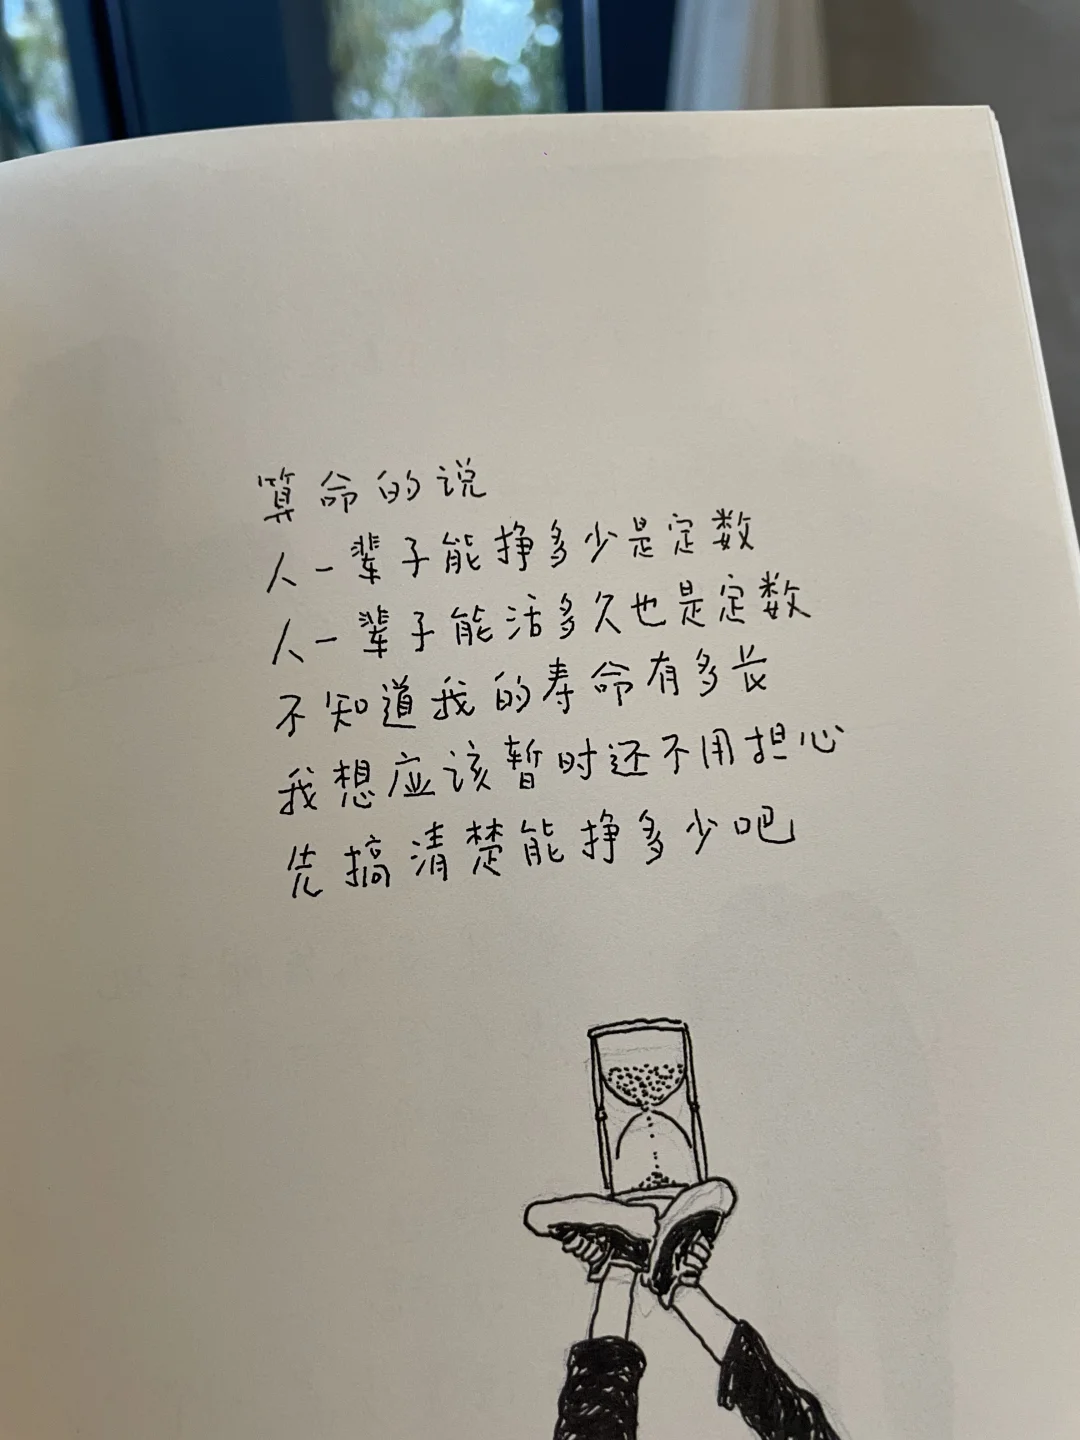 算命的说
人一辈子能挣多少是定数
人一辈子能活多久也是定数
不知道我的寿命有多长
我想应该暂时还不用担心
先搞清楚能挣多少吧